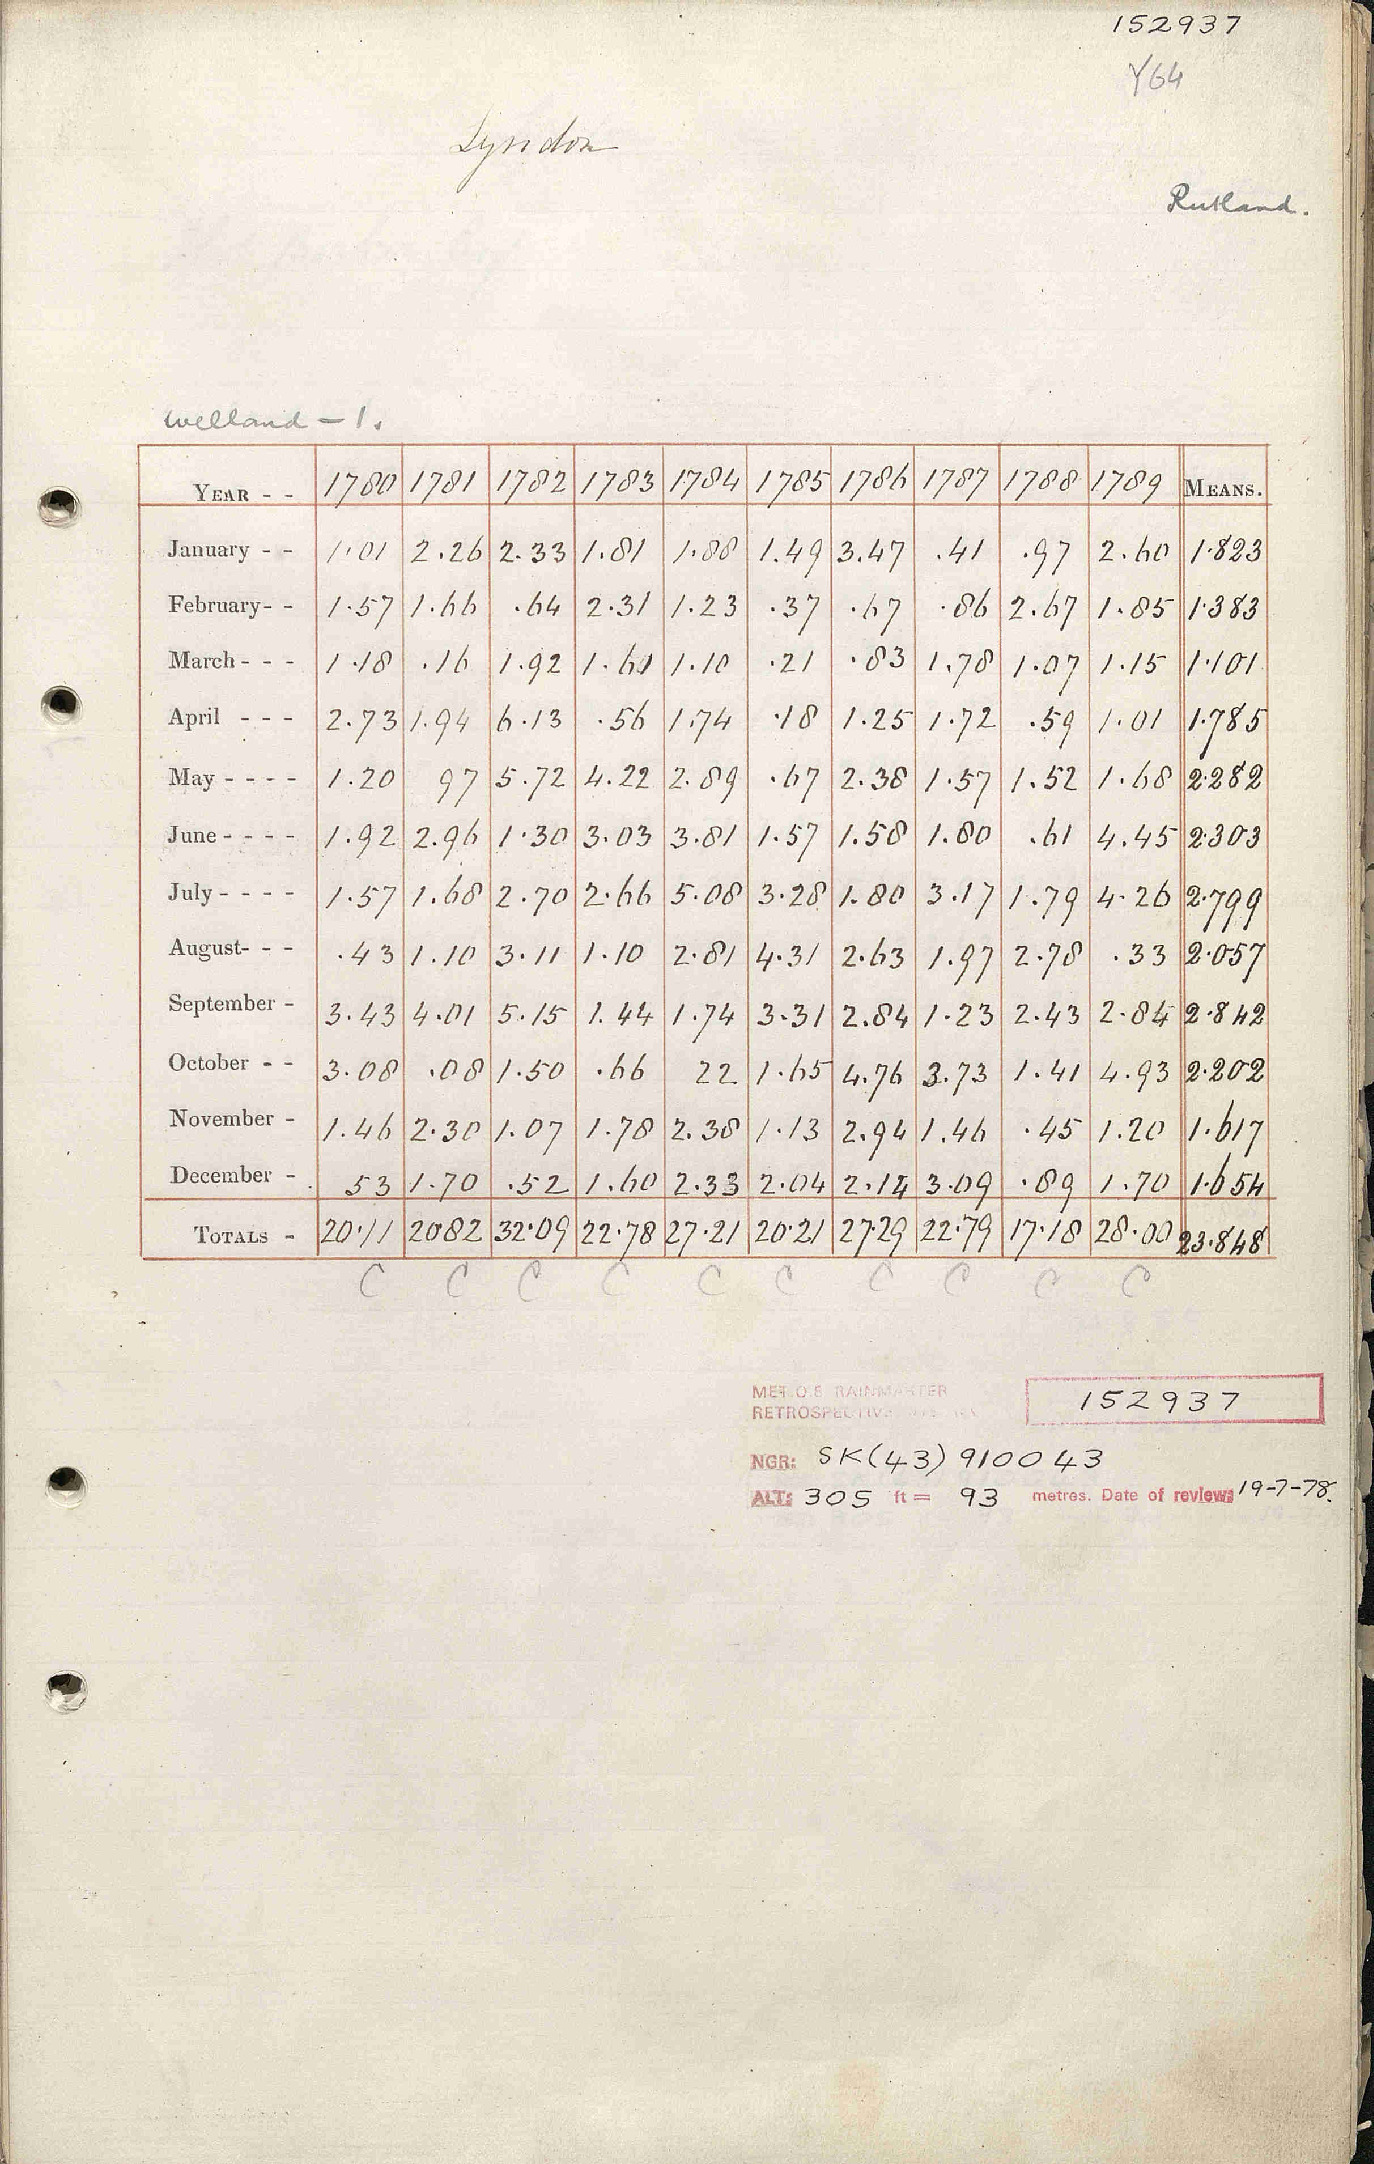 152937
Y64
Lyndon
Rutland.
Welland - 1.
YEAR - - 1780 1781 1782 1783 1784 1785 1786 1787 1788 1789 MEANS.
January - - 1.01 2.26 2.33 1.81 1.88 1.49 3.47 .41 .97 2.60 1.823
February- - 1.57 1.66 .64 2.31 1.23 .37 .67 .86 2.67 1.85 1.383
March - - - 1.18 .16 1.92 1.61 1.10 .21 .83 1.78 1.07 1.15 1.101
April - - - 2.73 1.94 6.13 .56 1.74 .18 1.25 1.72 .59 1.01 1.785
May - - - - 1.20 97 5.72 4.22 2.89 .67 2.38 1.57 1.52 1.68 2.282
June - - - - 1.92 2.96 1.30 3.03 3.81 1.57 1.58 1.80 .61 4.45 2.303
July - - - - 1.57 1.68 2.70 2.66 5.08 3.28 1.80 3.17 1.79 4.26 2.799
August- - - .43 1.10 3.11 1.10 2.81 4.31 2.63 1.97 2.78 .33 2.057
September - 3.43 4.01 5.15 1.44 1.74 3.31 2.84 1.23 2.43 2.84 2.842
October - - 3.08 .08 1.50 .66 22 1.65 4.76 3.73 1.41 4.93 2.202
November - 1.46 2.30 1.07 1.78 2.38 1.13 2.94 1.46 .45 1.20 1.617
December - 53 1.70 .52 1.60 2.33 2.04 2.14 3.09 .89 1.70 1.654
TOTALS - 20.11 2082 32.09 22.78 27.21 20.21 27.29 22.79 17.18 28.00 23.848
C C C C C C C C C C
MET.O.8 RAINMASTER
RETROSPECTIVE
152937
NGR: SK(43) 910043
ALT: 305 ft = 93 metres. Date of review: 19-7-78.